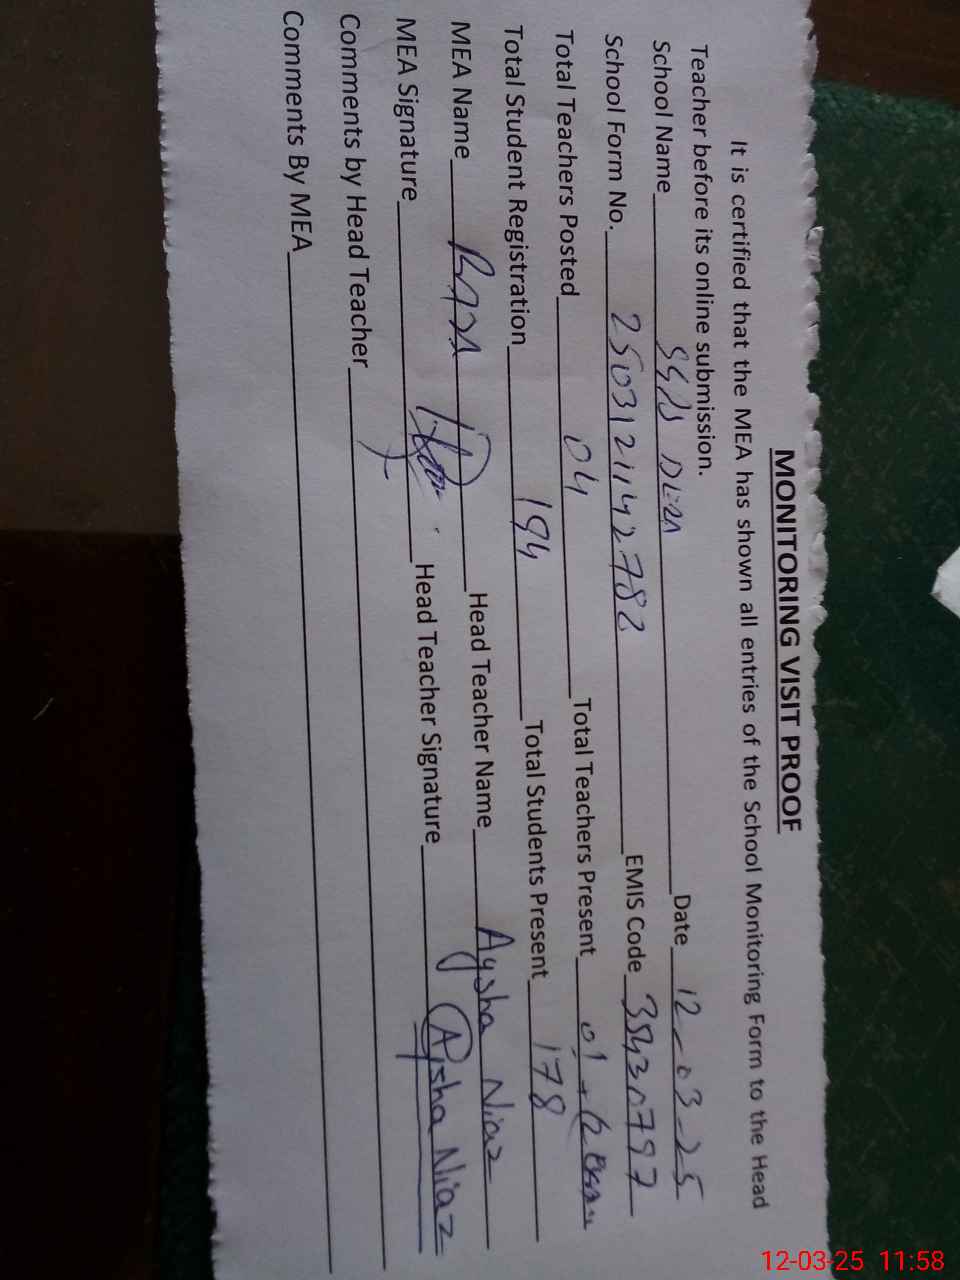 MONITORING VISIT PROOF
It is certified that the MEA has shown all entries of the School Monitoring Form to the Head
Teacher before its online submission.
School Name Date 12-03-25
School Form No. 2503121142782 EMIS Code
Total Teachers Posted 04 Total Teachers Present 01
Total Student Registration 194 Total Students Present 178
MEA Name Head Teacher Name Aysha Niaz
MEA Signature Head Teacher Signature Aysha Niaz
Comments by Head Teacher
Comments By MEA
12-03-25 11:58